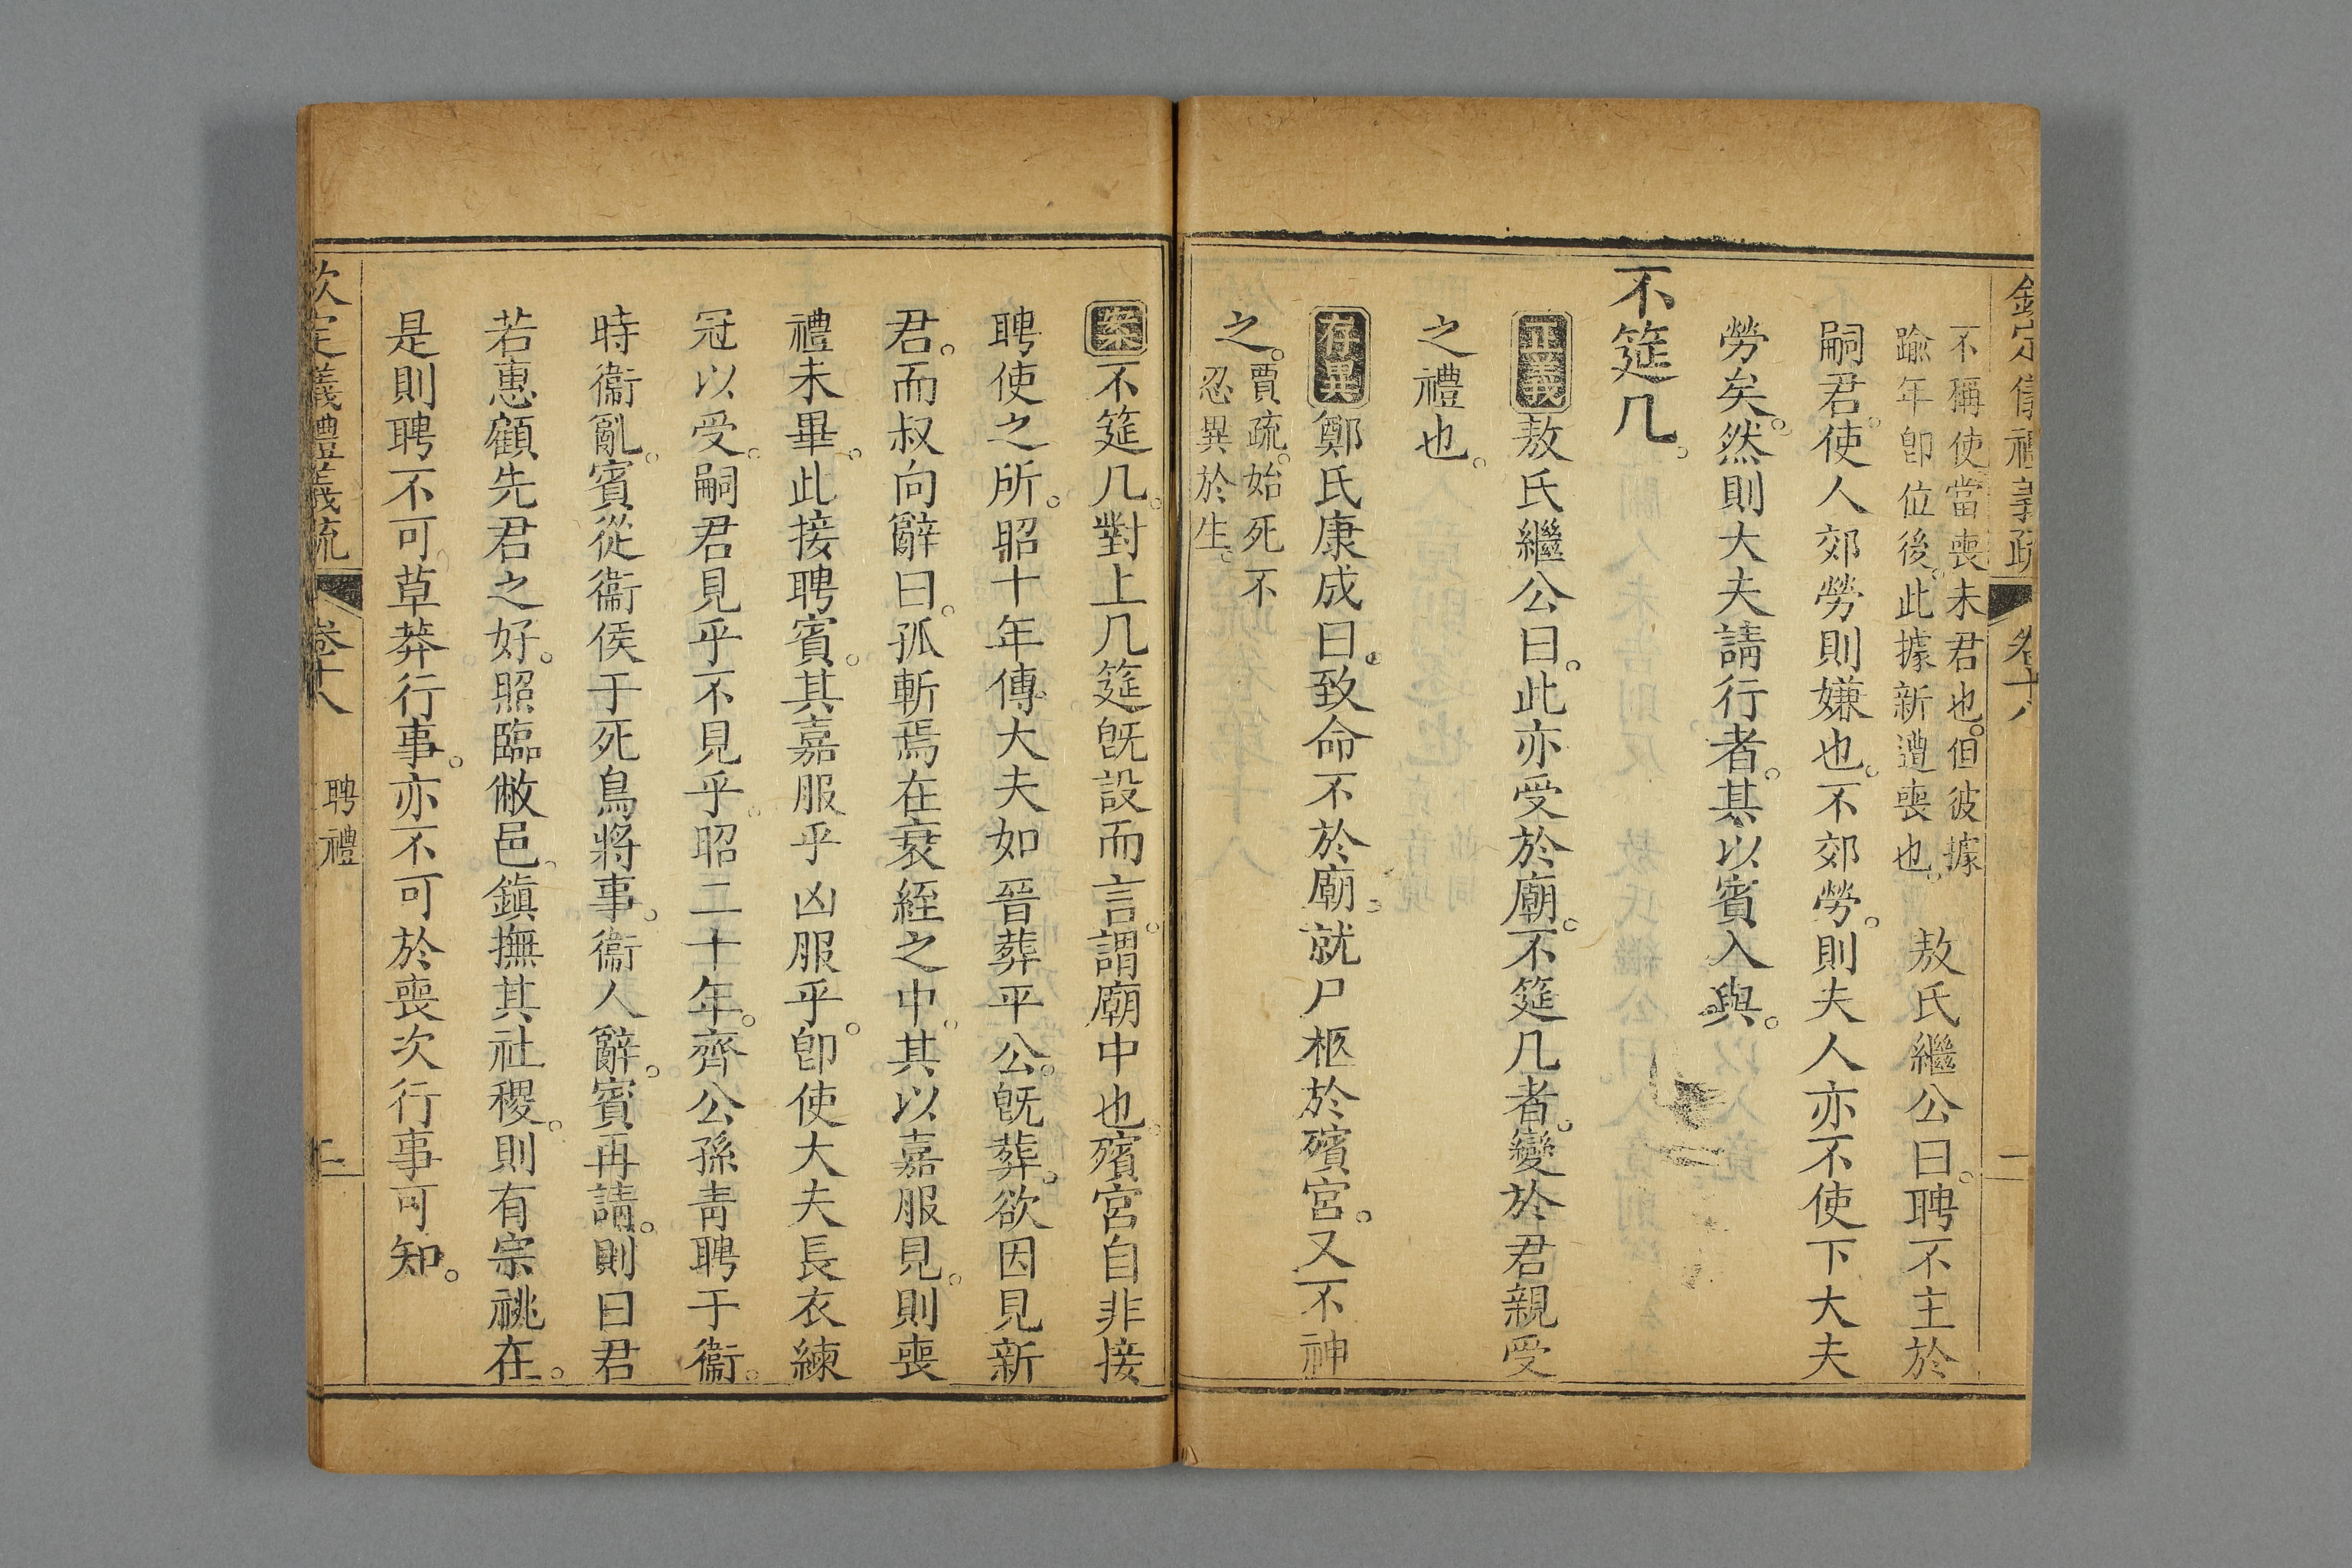 欽定儀禮義疏 卷十八 二
不稱使當喪未君也。但彼據
踰年卽位後。此據新遭喪也。
敖氏繼公曰。聘不主於
嗣君。使人郊勞則嫌也。不郊勞。則夫人亦不使下大夫
勞矣。然則大夫請行者。其以賓入與。
不筵几。
正義敖氏繼公曰。此亦受於廟。不筵几者。變於君親受
之禮也。
存異鄭氏康成曰。致命不於廟。就尸柩於殯宮。又不神
之。
賈疏。始死不
忍異於生。
案不筵几。對上几筵旣設而言。謂廟中也。殯宮自非接
聘使之所。昭十年傳。大夫如晉葬平公。旣葬。欲因見新
君。而叔向辭曰。孤斬焉在衰絰之中。其以嘉服見。則喪
禮未畢。此接聘賓。其嘉服乎凶服乎。卽使大夫長衣練
冠以受。嗣君見乎不見乎。昭二十年。齊公孫靑聘于衞。
時衞亂。賓從衞侯于死鳥將事。衞人辭。賓再請。則曰君
若惠顧先君之好。照臨敝邑。鎭撫其社稷。則有宗祧在。
是則聘不可草莽行事。亦不可於喪次行事可知。
欽定義禮義疏 卷十八 聘禮